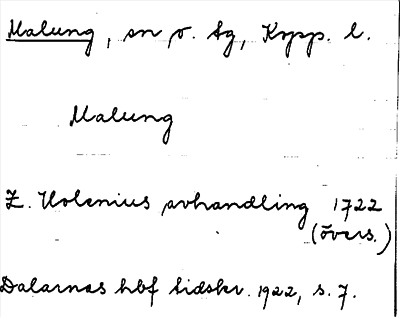 Malung, sn o. tg, Kopp. l.
Malung
Z. Holenius avhandling 1722
(övers.)
Dalarnas hbf tidskr. 1922, s. 7.